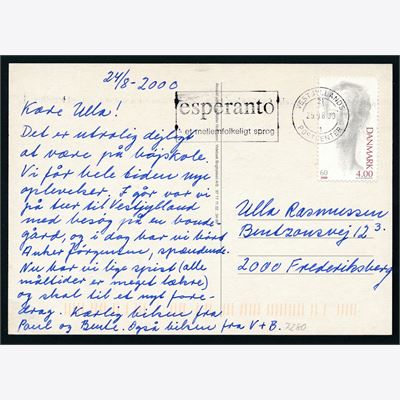 24/8-2000
Kære Ulla!
Det er utrolig dejligt
at være på højskole.
Vi får hele tiden nye
oplevelser. I går var vi
på tur til Vestjylland
med besøg på en bonde
gård, og i dag har vi hørt
Anker Jörgensen, spændende.
Nu har vi lige spist (alle
måltider er meget lækre)
og skal til et nyt fore-
drag. Kærlig hilsen fra
Poul og Bente. Også hilsen fra V+B.
esperanto
et mellemfolkeligt sprog
VESTJYLLANDS
POSTCENTER
DANMARK
60
4.00
Ulla Rasmussen
Bentzonsvej 12³
2000 Frederiksberg